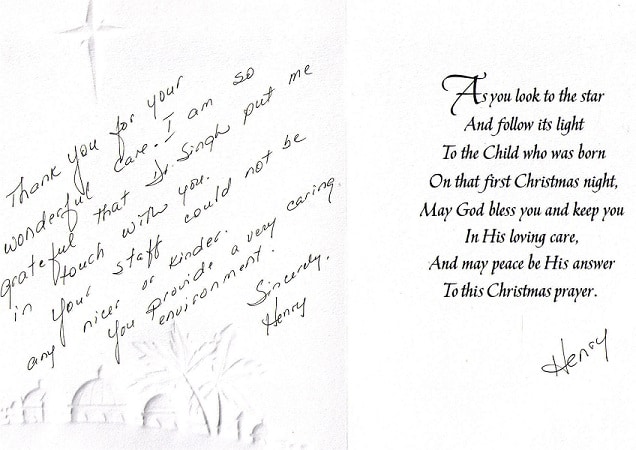 Thank you for your
wonderful care. I am so
grateful that Dr. Singh put me
in touch with you.
Your staff could not be
any nicer or kinder.
You provide a very caring
environment.
Sincerely,
Henry
As you look to the star
And follow its light
To the Child who was born
On that first Christmas night,
May God bless you and keep you
In His loving care,
And may peace be His answer
To this Christmas prayer.
Henry